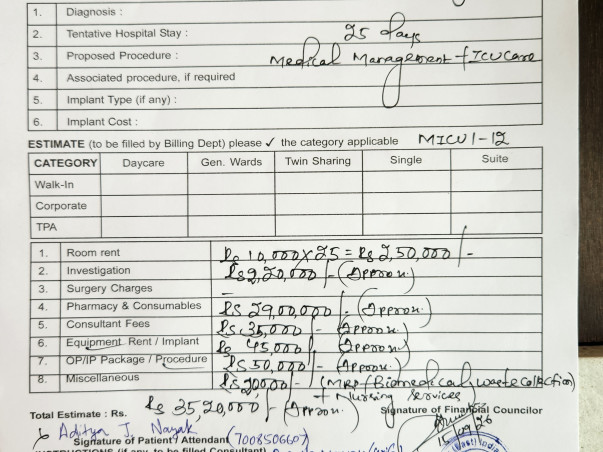 1. Diagnosis :
2. Tentative Hospital Stay : 25 days
3. Proposed Procedure : Medical Management + ICU Care
4. Associated procedure, if required
5. Implant Type (if any) :
6. Implant Cost :
ESTIMATE (to be filled by Billing Dept) please ✓ the category applicable MICU 1-12
CATEGORY Daycare Gen. Wards Twin Sharing Single Suite
Walk-In
Corporate
TPA
1. Room rent Rs 10,000 x 25 = Rs 2,50,000/-
2. Investigation Rs 2,20,000/- (Approx.)
3. Surgery Charges –
4. Pharmacy & Consumables Rs 29,00,000/- (Approx.)
5. Consultant Fees Rs 35,000/- (Approx.)
6. Equipment Rent / Implant Rs 45,000/- (Approx.)
7. OP/IP Package / Procedure Rs 50,000/- (Approx.)
8. Miscellaneous Rs 20,000/- (MRD/Biomedical, waste collection)
+ Nursing services
Total Estimate : Rs. Rs 35,20,000/- (Approx.) Signature of Financial Councilor
Aditya J. Nayak
Signature of Patient / Attendant (7008506607)
INSTRUCTIONS (if any, to be filled Consultant)